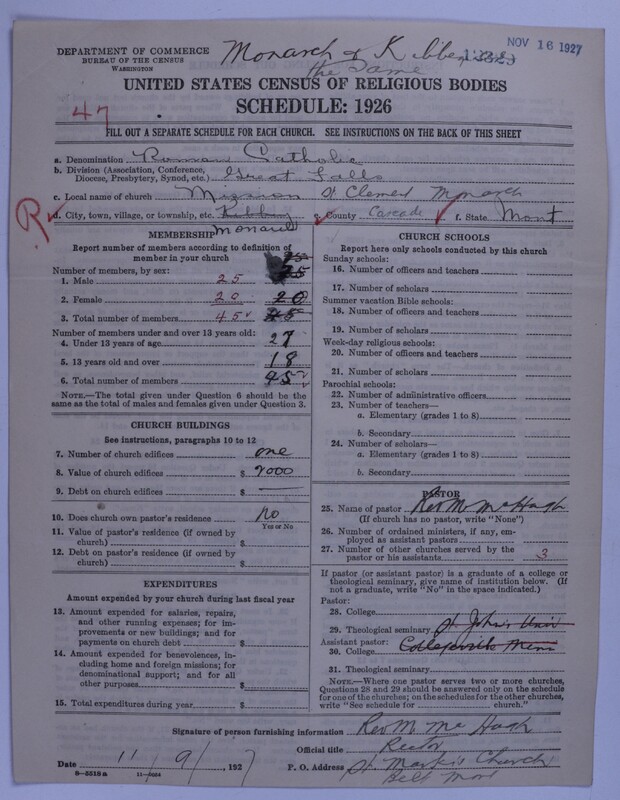 NOV 16 1927
DEPARTMENT OF COMMERCE
BUREAU OF THE CENSUS
WASHINGTON
Monarch & Kibbey
the Same
UNITED STATES CENSUS OF RELIGIOUS BODIES
SCHEDULE: 1926
47
FILL OUT A SEPARATE SCHEDULE FOR EACH CHURCH. SEE INSTRUCTIONS ON THE BACK OF THIS SHEET
a. Denomination Roman Catholic
b. Division (Association, Conference, Diocese, Presbytery, Synod, etc.) Great Falls
c. Local name of church Mission St Clemed Monarch
R
d. City, town, village, or township, etc. Kibbey Monarch e. County Cascade f. State Mont
MEMBERSHIP
Report number of members according to definition of
member in your church
Number of members, by sex:
1. Male 25 25
2. Female 20 20
3. Total number of members 45 45
Number of members under and over 13 years old:
4. Under 13 years of age 27
5. 13 years old and over 18
6. Total number of members 45
NOTE.—The total given under Question 6 should be
the same as the total of males and females given under Question 3.
CHURCH BUILDINGS
See instructions, paragraphs 10 to 12
7. Number of church edifices one
8. Value of church edifices $ 2000
9. Debt on church edifices $
10. Does church own pastor's residence No
Yes or No
11. Value of pastor's residence (if owned by
church) $
12. Debt on pastor's residence (if owned by
church) $
EXPENDITURES
Amount expended by your church during last fiscal year
13. Amount expended for salaries, repairs,
and other running expenses; for im-
provements or new buildings; and for
payments on church debt $
14. Amount expended for benevolences, in-
cluding home and foreign missions; for
denominational support; and for all
other purposes $
15. Total expenditures during year $
CHURCH SCHOOLS
Report here only schools conducted by this church
Sunday schools:
16. Number of officers and teachers
17. Number of scholars
Summer vacation Bible schools:
18. Number of officers and teachers
19. Number of scholars
Week-day religious schools:
20. Number of officers and teachers
21. Number of scholars
Parochial schools:
22. Number of administrative officers
23. Number of teachers—
a. Elementary (grades 1 to 8)
b. Secondary
24. Number of scholars—
a. Elementary (grades 1 to 8)
b. Secondary
PASTOR
25. Name of pastor Rev M McHugh
(If church has no pastor, write "None")
26. Number of ordained ministers, if any, em-
ployed as assistant pastors
27. Number of other churches served by the
pastor or his assistants 3
If pastor (or assistant pastor) is a graduate of a college or
theological seminary, give name of institution below. (If
not a graduate, write "No" in the space indicated.)
Pastor:
28. College
29. Theological seminary St John's Univ
Assistant pastor:
30. College Collegeville Minn
31. Theological seminary
NOTE.—Where one pastor serves two or more churches,
Questions 28 and 29 should be answered only on the schedule
for one of the churches; on the schedules for the other churches,
write "See schedule for church."
Signature of person furnishing information Rev M McHugh
Official title Rector
Date 11/9/1927
P. O. Address St Mark's Church
Belt Mont
8—5518a 11—9054